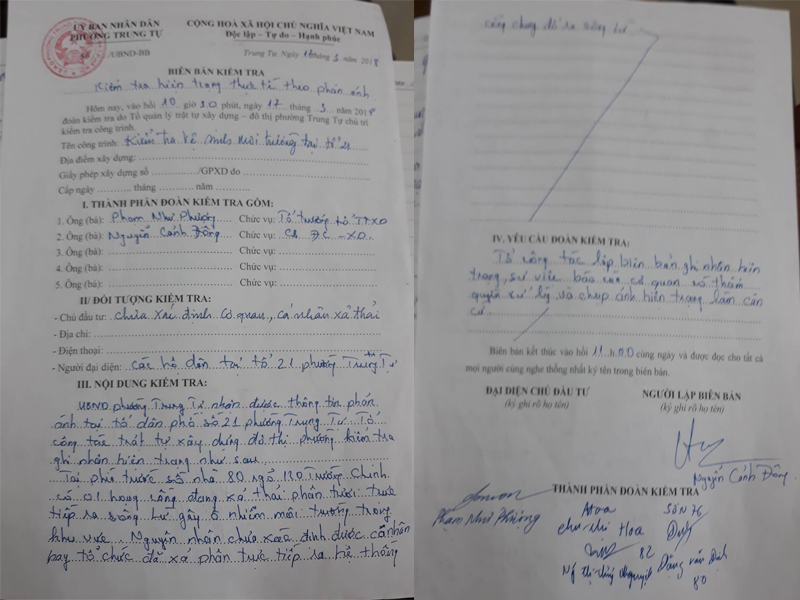 ỦY BAN NHÂN DÂN
PHƯỜNG TRUNG TỰ
Số /UBND-BB
CỘNG HOÀ XÃ HỘI CHỦ NGHĨA VIỆT NAM
Độc lập – Tự do – Hạnh phúc
Trung Tự, Ngày 17 tháng 3 năm 2018
BIÊN BẢN KIỂM TRA
Kiểm tra hiện trạng thực tế theo phản ánh
Hôm nay, vào hồi 10 giờ 30 phút, ngày 17 tháng 3 năm 2018
đoàn kiểm tra do Tổ quản lý trật tự xây dựng – đô thị phường Trung Tự chủ trì
kiểm tra công trình.
Tên công trình: Kiểm tra vệ sinh môi trường tại tổ 21
Địa điểm xây dựng:
Giấy phép xây dựng số /GPXD do
Cấp ngày tháng năm
I. THÀNH PHẦN ĐOÀN KIỂM TRA GỒM:
1. Ông (bà): Phạm Như Phượng Chức vụ: Tổ trưởng tổ TTXD
2. Ông (bà): Nguyễn Cảnh Đông Chức vụ: CB ĐC - XD
3. Ông (bà): Chức vụ:
4. Ông (bà): Chức vụ:
5. Ông (bà): Chức vụ:
II/ ĐỐI TƯỢNG KIỂM TRA:
- Chủ đầu tư: Chưa xác định cơ quan, cá nhân xả thải
- Địa chỉ:
- Điện thoại:
- Người đại diện: Các hộ dân tại tổ 21 phường Trung Tự
III. NỘI DUNG KIỂM TRA:
UBND phường Trung Tự nhận được thông tin phản
ánh tại tổ dân phố số 21 phường Trung Tự. Tổ
công tác trật tự xây dựng đô thị phường kiểm tra
ghi nhận hiện trạng như sau
Tại phía trước số nhà 80 ngõ 130 Trường Chinh
có 01 họng cống đang xả thải phân tươi trực
tiếp ra sông Lừ gây ô nhiễm môi trường trong
khu vực. Nguyên nhân chưa xác định được cá nhân
hay tổ chức đã xả phân trực tiếp ra hệ thống
cống chung đổ ra sông Lừ
IV. YÊU CẦU ĐOÀN KIỂM TRA:
Tổ công tác lập biên bản ghi nhận hiện
trạng, sự việc báo cáo cơ quan có thẩm
quyền xử lý và chụp ảnh hiện trạng làm căn
cứ.
Biên bản kết thúc vào hồi 11 h 00 cùng ngày và được đọc cho tất cả
mọi người cùng nghe thống nhất ký tên trong biên bản.
ĐẠI DIỆN CHỦ ĐẦU TƯ
(ký ghi rõ họ tên)
NGƯỜI LẬP BIÊN BẢN
(ký ghi rõ họ tên)
Nguyễn Cảnh Đông
THÀNH PHẦN ĐOÀN KIỂM TRA
Phạm Như Phượng
Hoa
Chu thị Hoa
SỐN 76
82
Đặng văn
80